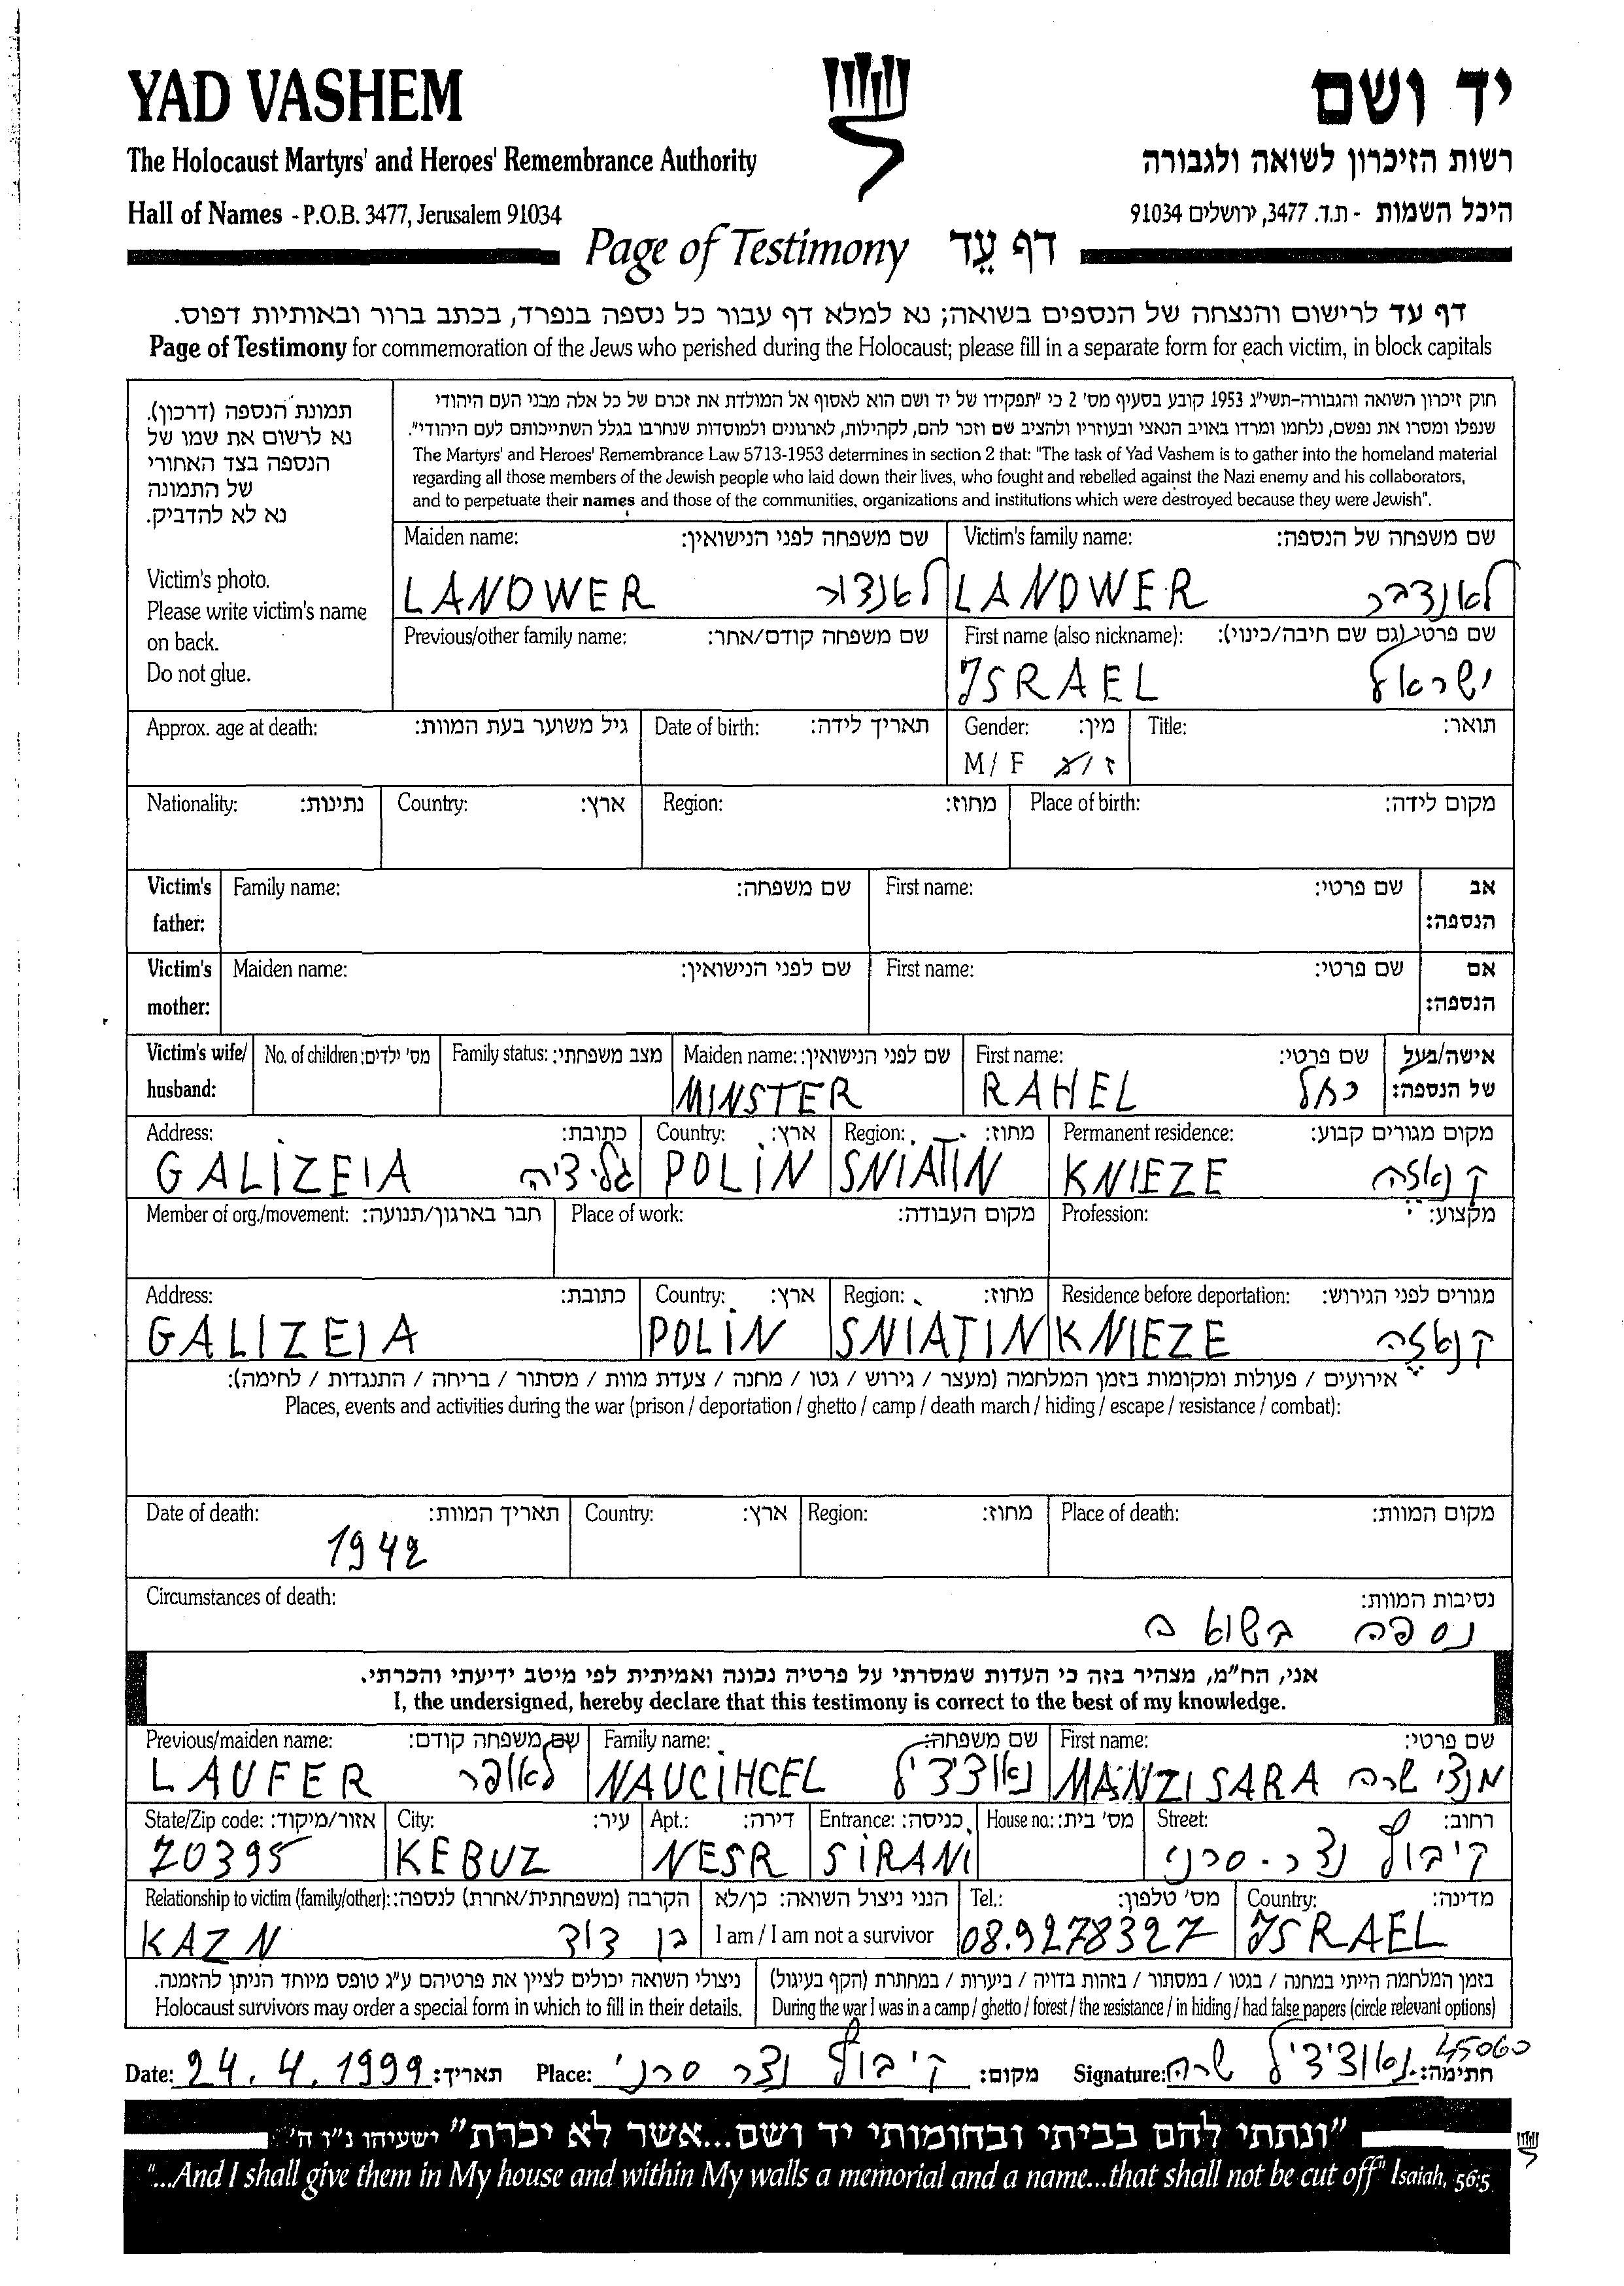 YAD VASHEM יד ושם
The Holocaust Martyrs' and Heroes' Remembrance Authority רשות הזיכרון לשואה ולגבורה
Hall of Names - P.O.B. 3477, Jerusalem 91034 היכל השמות - ת.ד. 3477, ירושלים 91034
Page of Testimony דף עֵד
דף עד לרישום והנצחה של הנספים בשואה; נא למלא דף עבור כל נספה בנפרד, בכתב ברור ובאותיות דפוס.
Page of Testimony for commemoration of the Jews who perished during the Holocaust; please fill in a separate form for each victim, in block capitals
תמונת הנספה (דרכון).
נא לרשום את שמו של
הנספה בצד האחורי
של התמונה
נא לא להדביק.
Victim's photo.
Please write victim's name
on back.
Do not glue.
חוק זיכרון השואה והגבורה-תשי"ג 1953 קובע בסעיף מס' 2 כי "תפקידו של יד ושם הוא לאסוף אל המולדת את זכרם של כל אלה מבני העם היהודי
שנפלו ומסרו את נפשם, נלחמו ומרדו באויב הנאצי ובעוזריו ולהציב שם וזכר להם, לקהילות, לארגונים ולמוסדות שנחרבו בגלל השתייכותם לעם היהודי".
The Martyrs' and Heroes' Remembrance Law 5713-1953 determines in section 2 that: "The task of Yad Vashem is to gather into the homeland material
regarding all those members of the Jewish people who laid down their lives, who fought and rebelled against the Nazi enemy and his collaborators,
and to perpetuate their names and those of the communities, organizations and institutions which were destroyed because they were Jewish".
Maiden name: שם משפחה לפני הנישואין: Victim's family name: שם משפחה של הנספה:
LANDWER לאנדור LANDWER לאנדבר
Previous/other family name: שם משפחה קודם/אחר: First name (also nickname): שם פרטי (גם שם חיבה/כינוי):
ISRAEL ישראל
Approx. age at death: גיל משוער בעת המוות: Date of birth: תאריך לידה: Gender: מין: Title: תואר:
M / F ז / נ
Nationality: נתינות: Country: ארץ: Region: מחוז: Place of birth: מקום לידה:
Victim's father: Family name: שם משפחה: First name: שם פרטי: אב הנספה:
Victim's mother: Maiden name: שם לפני הנישואין: First name: שם פרטי: אם הנספה:
Victim's wife/ husband: No. of children: מס' ילדים: Family status: מצב משפחתי: Maiden name: שם לפני הנישואין: First name: שם פרטי: אישה/בעל של הנספה:
MINSTER RAHEL רחל
Address: כתובת: Country: ארץ: Region: מחוז: Permanent residence: מקום מגורים קבוע:
GALIZEIA גליציה POLIN SNIATIN KNIEZE קנאזה
Member of org./movement: חבר בארגון/תנועה: Place of work: מקום העבודה: Profession: מקצוע:
Address: כתובת: Country: ארץ: Region: מחוז: Residence before deportation: מגורים לפני הגירוש:
GALIZEIA POLIN SNIATIN KNIEZE קנאזה
אירועים / פעולות ומקומות בזמן המלחמה (מעצר / גירוש / גטו / מחנה / צעדת מוות / מסתור / בריחה / התנגדות / לחימה):
Places, events and activities during the war (prison / deportation / ghetto / camp / death march / hiding / escape / resistance / combat):
Date of death: תאריך המוות: Country: ארץ: Region: מחוז: Place of death: מקום המוות:
1942
Circumstances of death: נסיבות המוות:
נספה בשואה
אני, הח"מ, מצהיר בזה כי העדות שמסרתי על פרטיה נכונה ואמיתית לפי מיטב ידיעתי והכרתי.
I, the undersigned, hereby declare that this testimony is correct to the best of my knowledge.
Previous/maiden name: שם משפחה קודם: Family name: שם משפחה: First name: שם פרטי:
LAUFER לאופר NAUCIHCEL נאוציציל MANZI SARA מנצי שרה
State/Zip code: אזור/מיקוד: City: עיר: Apt.: דירה: Entrance: כניסה: House no.: מס' בית: Street: רחוב:
70395 KEBUZ NESR SIRANI קיבוץ נצר - סרני
Relationship to victim (family/other): הקרבה (משפחתית/אחרת) לנספה: הנני ניצול השואה: כן/לא Tel.: מס' טלפון: Country: מדינה:
KAZN בן דוד I am / I am not a survivor 08.9278327 ISRAEL
ניצולי השואה יכולים לציין את פרטיהם ע"ג טופס מיוחד הניתן להזמנה. בזמן המלחמה הייתי במחנה / בגטו / במסתור / בזהות בדויה / ביערות / במחתרת (הקף בעיגול)
Holocaust survivors may order a special form in which to fill in their details. During the war I was in a camp / ghetto / forest / the resistance / in hiding / had false papers (circle relevant options)
45060
Date: 24.4.1999 תאריך: Place: קיבוץ נצר סרני מקום: Signature: נאוציציל שרה חתימה:
"ונתתי להם בביתי ובחומותי יד ושם...אשר לא יכרת" ישעיהו נ"ו ה'
"...And I shall give them in My house and within My walls a memorial and a name...that shall not be cut off" Isaiah, 56:5